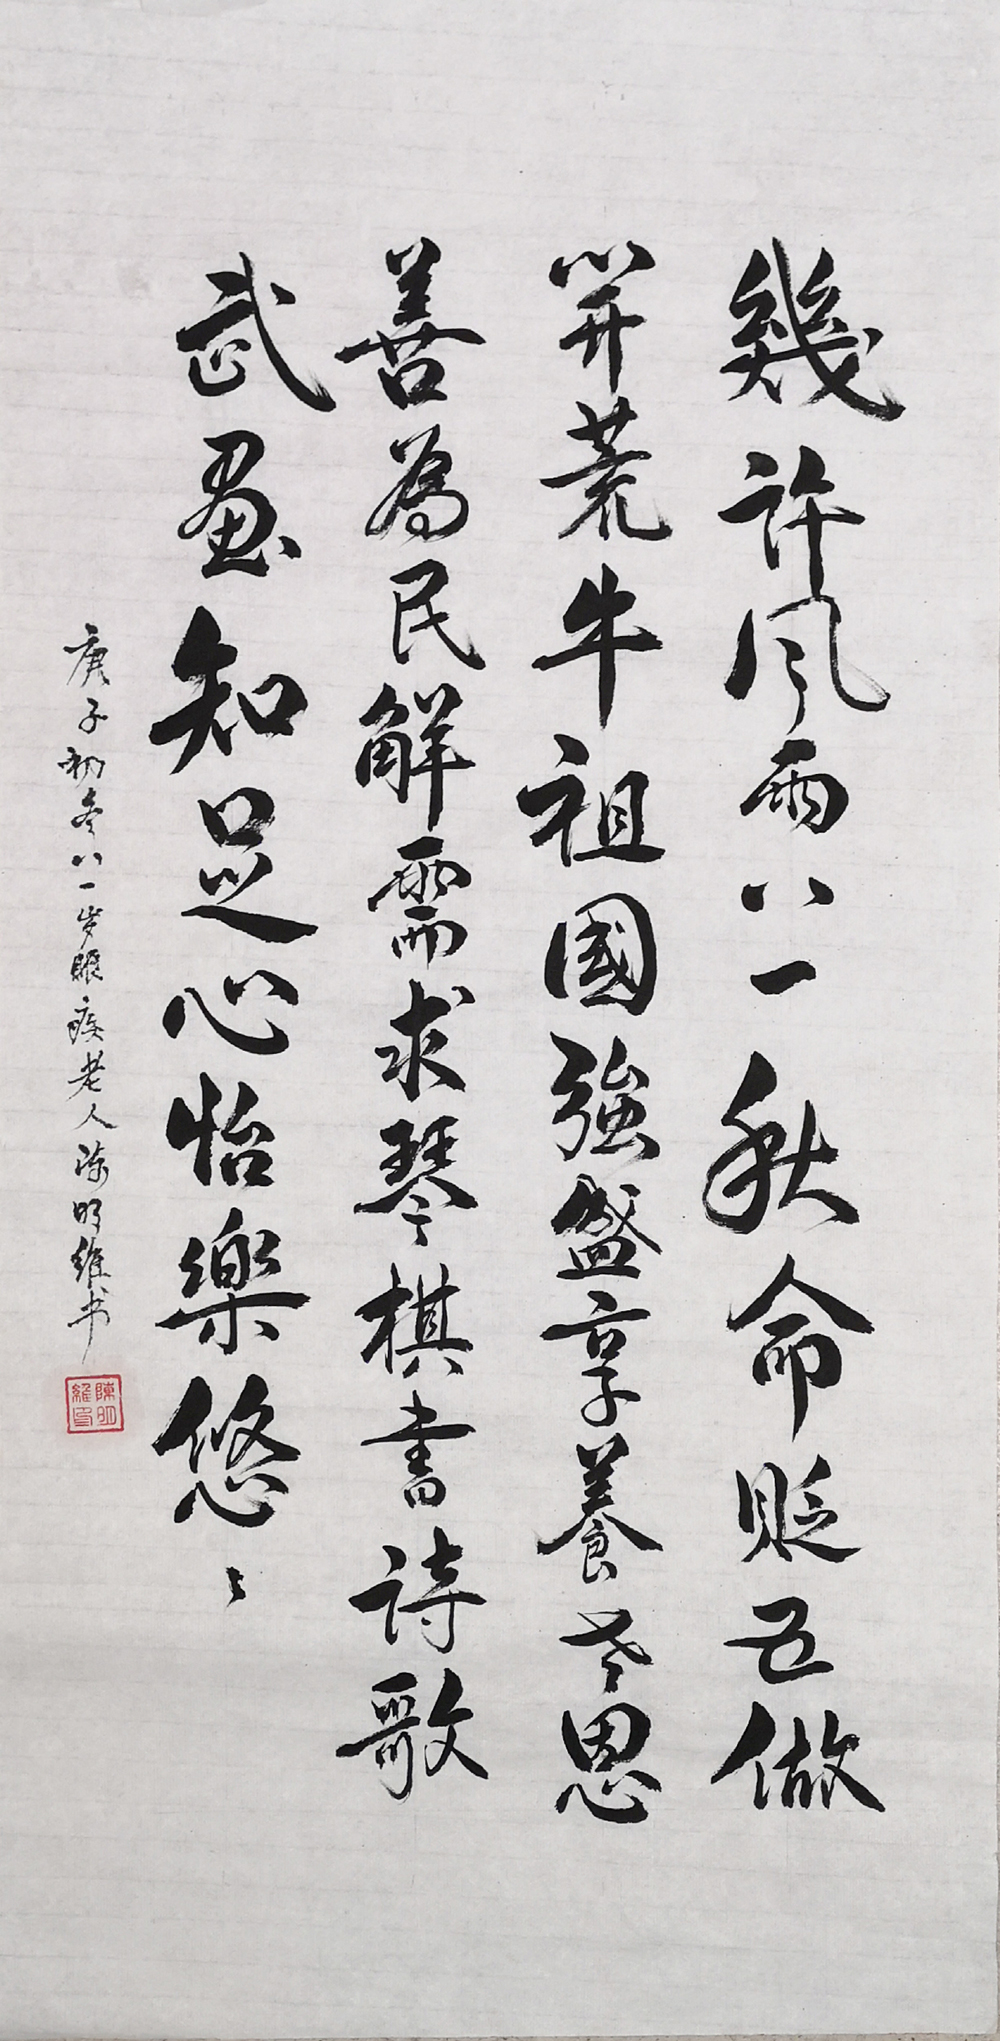 幾許風雨八一秋命贬五做
開荒牛祖國強盛享養老思
善為民解需求琴棋書詩歌
武畫知足心怡樂悠悠
庚子初冬八一岁眼疾老人陈明维书
陳明維印